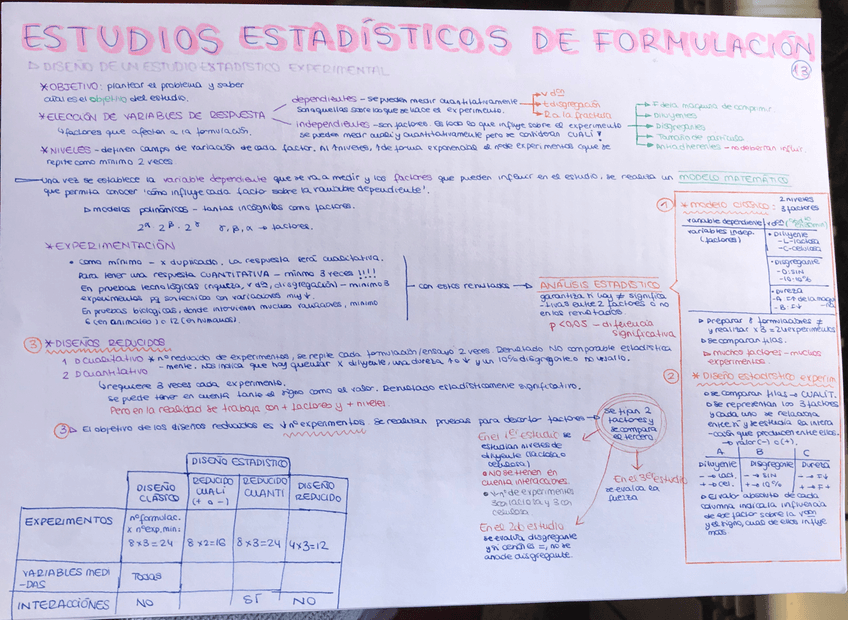 ESTUDIOS ESTADÍSTICOS DE FORMULACIÓN
13
▷ DISEÑO DE UN ESTUDIO ESTADÍSTICO EXPERIMENTAL
* OBJETIVO: plantear el problema y saber
cual es el objetivo del estudio.
* ELECCIÓN DE VARIABLES DE RESPUESTA
↳ factores que afecten a la formulación.
dependientes - se pueden medir cuantitativamente
son aquellas sobre los que se hace el experimento.
→ v dón
→ t disgregación
→ R a la fractura
independientes - son factores. Es todo lo que influye sobre el experimento
se pueden medir cuali y cuantitativamente pero se consideran CUALI!
→ F de la maquina de comprimir
→ Diluyentes
→ Disgregantes
→ Tamaño de partícula
→ Antiadherentes - no deberían influir
* NIVELES - definen campos de variación de cada factor. A ↑ niveles, ↑ de forma exponencial el nº de experimentos (que se
repite como mínimo 2 veces
Una vez se establece la variable dependiente que se va a medir y los factores que pueden influir en el estudio, se realiza un MODELO MATEMÁTICO
que permita conocer 'como influye cada factor sobre la variable dependiente'.
▷ modelos polinómicos - tantas incógnitas como factores.
2α 2β 2γ γ, β, α → factores.
* EXPERIMENTACIÓN
• como mínimo - x duplicado. La respuesta será cualitativa.
Para tener una respuesta CUANTITATIVA - mínimo 3 veces !!!!
En pruebas tecnológicas (riqueza, v dón, disgregación) - mínimo 3
experimentos pq son técnicas con variaciones muy ↓.
En pruebas biológicas, donde intervienen muchas variaciones, mínimo
6 (en animales) o 12 (en humanos).
con estos resultados →
ANÁLISIS ESTADÍSTICO
garantiza si hay ≠ significa
-tivas entre 2 factores o no
en los resultados.
p<0,05 - diferencia
significativa
① * MODELO CLÁSICO:
2 niveles
3 factores
variable dependiente
v dón
variables indep.
(factores)
• Diluyente
- L-lactosa
- C-celulosa
• Disgregante
- 0: SIN
- 10: 10%
• Dureza
▷ Preparar 8 formulaciones ≠
y realizar x3 = 24 experimentos
▷ Se comparan filas.
▷ muchos factores - muchos
experimentos.
③ * DISEÑOS REDUCIDOS
1 ▷ Cualitativo * nº reducido de experimentos, se repite cada formulación/ensayo 2 veces. Resultado NO comparable estadística
-mente. Nos indica que hay que usar x diluyente, una dureza ↑ o ↓ y un 10% disgregante o no usarlo.
2 ▷ Cuantitativo
↳ requiere 3 veces cada experimento.
Se puede tener en cuenta tanto el signo como el valor. Resultado estadísticamente significativo.
Pero en la realidad se trabaja con + factores y + niveles.
3 ▷ El objetivo de los diseños reducidos es ↓ nº experimentos. Se realizan pruebas para descartar factores →
se fijan 2
factores y
se compara
el tercero
En el 1er estudio se
estudian niveles de
diluyente (lactosa o
celulosa)
• NO se tienen en
cuenta interacciones.
• nº de experimentos
3 con lactosa y 3 con
celulosa
En el 2do estudio
se evalúa disgregante
y si con él es =, no se
añade disgregante.
En el 3er estudio
se evalúa la
fuerza
② * Diseño estadístico experim
▷ Se comparan filas → CUALIT.
▷ Se representan los 3 factores
y cada uno se relaciona
entre sí y se estudia la intera
-cción que producen entre ellos.
→ valor (-) o (+).
A B C
Diluyente Disgregante Dureza
- → lact. - → SIN - → F↓
+ → cel. + → 10% + → F↑
▷ El valor absoluto de cada
columna indica la influencia
de ese factor sobre la vdón
y el signo, cual de ellos influye
más.
DISEÑO ESTADÍSTICO
DISEÑO CLÁSICO | REDUCIDO CUALI (+ o -) | REDUCIDO CUANTI | DISEÑO REDUCIDO
EXPERIMENTOS | nº formulac. x nº exp. min: 8x3=24 | 8x2=16 | 8x3=24 | 4x3=12
VARIABLES MEDI-DAS | TODAS
INTERACCIÓNES | NO | SI | NO